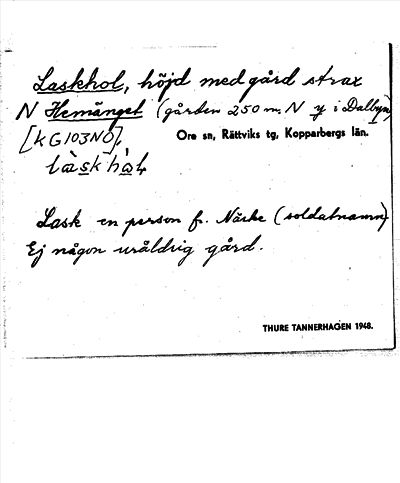 Laskhol, höjd med gård strax
N Hemänget (gården 250 m. N y i Dalbyn)
[KG103NO],
Ore sn, Rättviks tg, Kopparbergs län.
Lask en person fr. Närke (soldatnamn)
Ej någon uråldrig gård.
THURE TANNERHAGEN 1948.